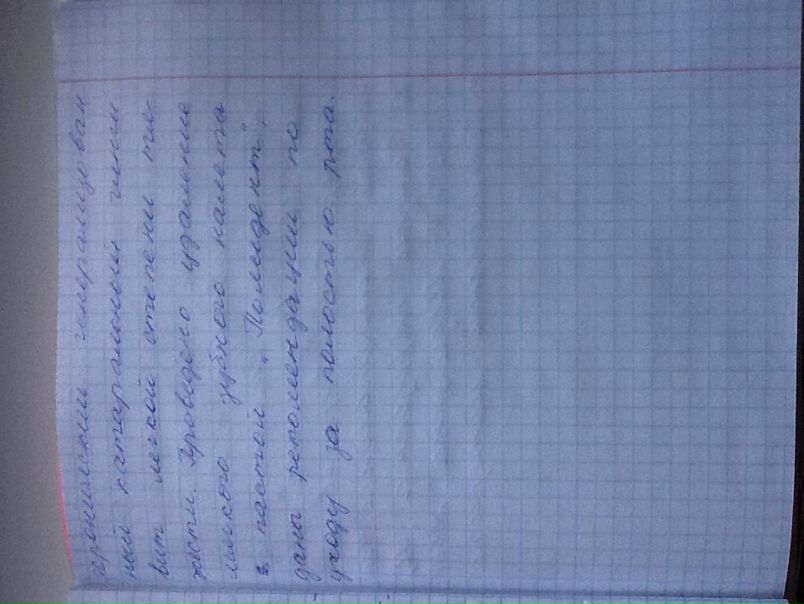 хронический генерализован
ный катаральный гинги
вит легкой степени тяже-
жести. Проведено удаление
мягкого зубного налета
с пастой „Полидент",
даны рекомендации по
уходу за полостью рта.